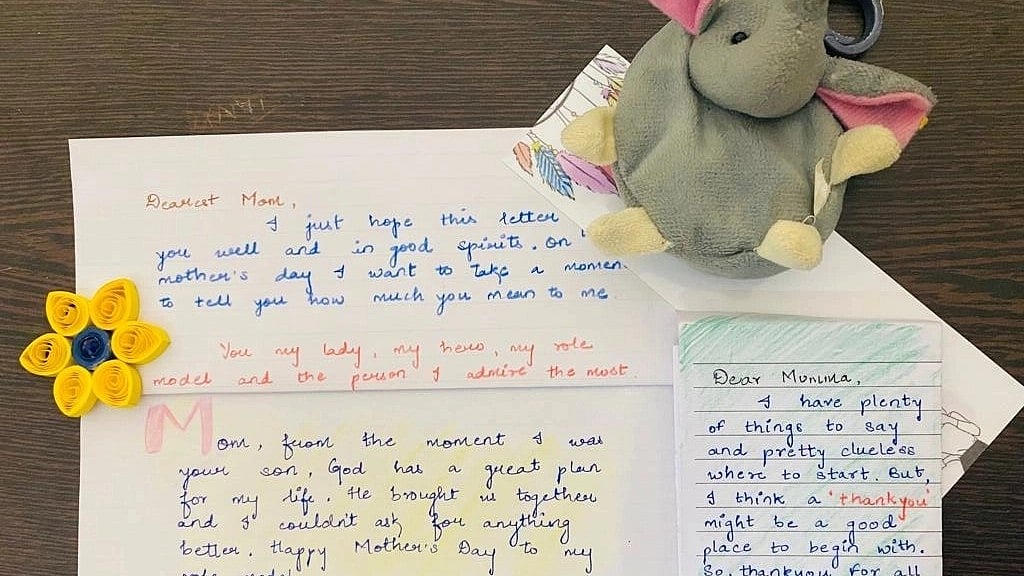 Dearest Mom,
I just hope this letter
you well and in good spirits. On
mother's day I want to take a momen
to tell you how much you mean to me
You my lady, my hero, my role
model and the person I admire the most.
Mom, from the moment I was
your son, God has a great plan
for my life. He brought us together
and I couldn't ask for anything
better. Happy Mother's Day to my
role model
Dear Mumma,
I have plenty
of things to say
and pretty clueless
where to start. But,
I think a 'thankyou'
might be a good
place to begin with.
So, thankyou for all